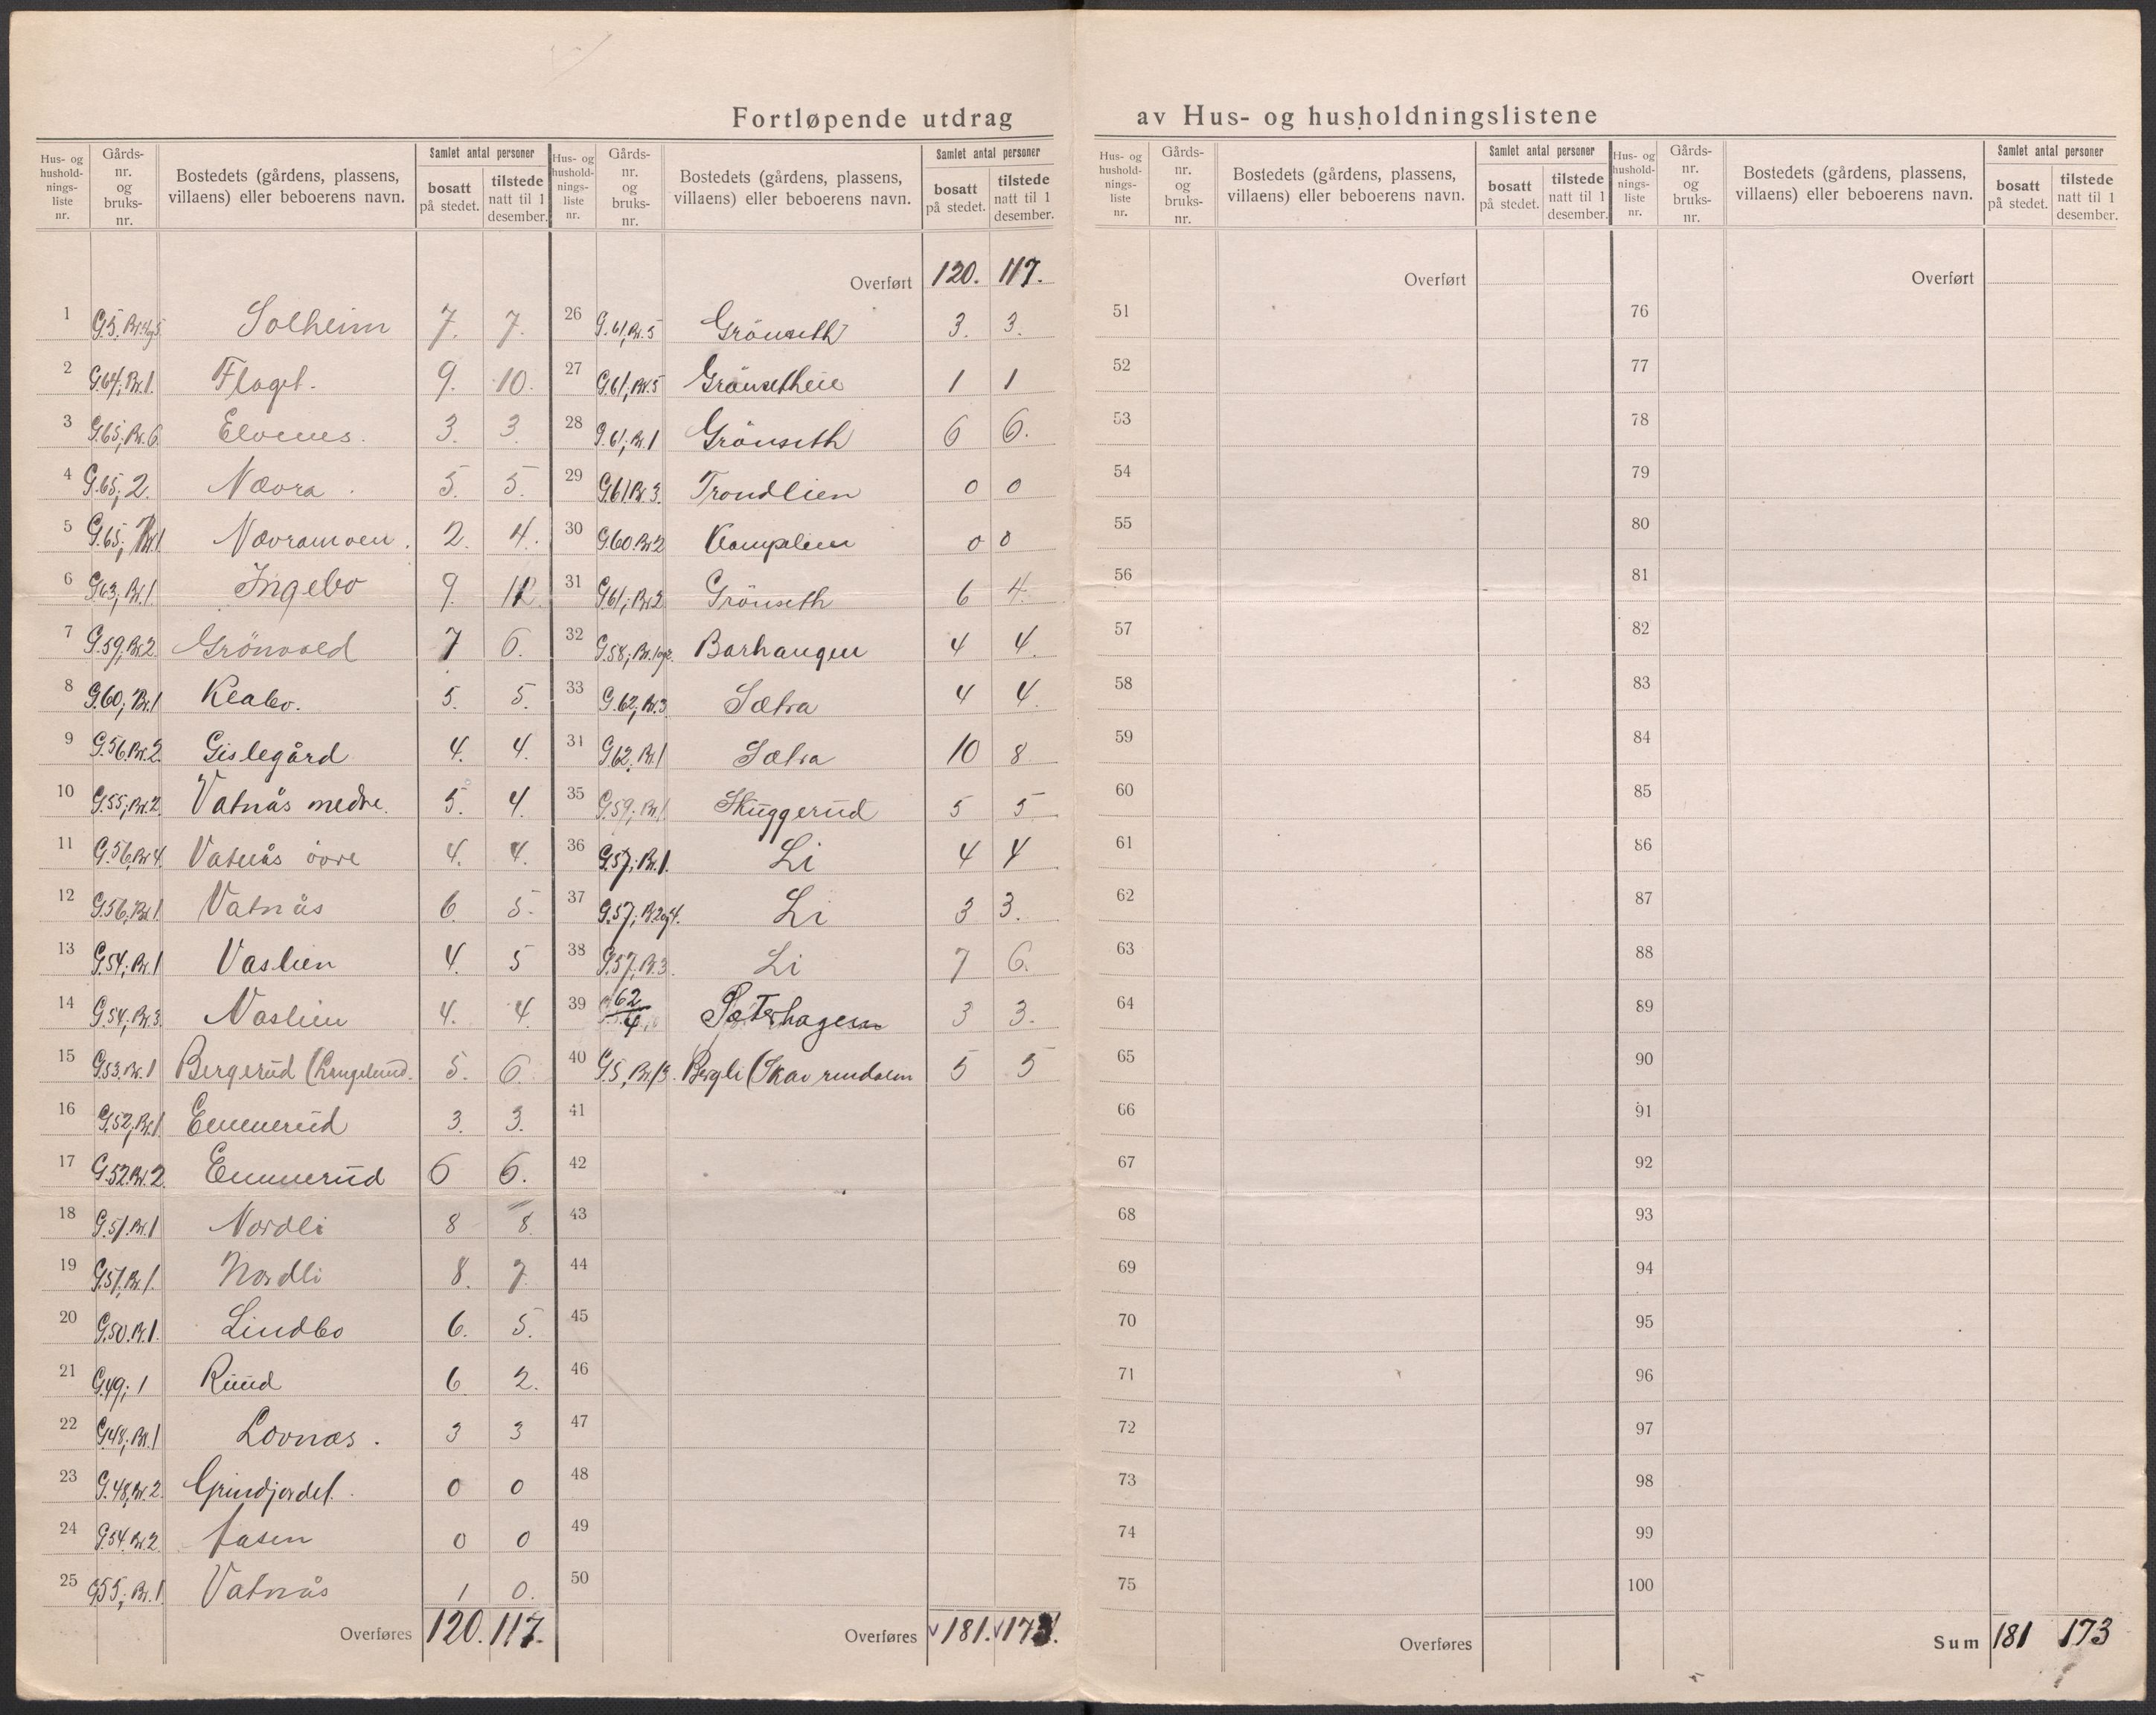 Fortløpende utdrag av Hus- og husholdningslistene
Hus- og hushold-nings-liste nr. | Gårds-nr. og bruks-nr. | Bostedets (gårdens, plassens, villaens) eller beboerens navn. | Samlet antal personer | bosatt på stedet. | tilstede natt til 1 desember.
1 | G.5, Br. | Solheim | 7. | 7.
2 | G.64, Br.1. | Flaget. | 9. | 10.
3 | G.65; Br.6 | Elvenes. | 3. | 3.
4 | G.65; 2. | Nævra. | 5. | 5.
5 | G.65; Br.1 | Nævramoen. | 2. | 4.
6 | G.63; Br.1. | Ingebo | 9. | 12.
7 | G.59; Br.2. | Grönvold | 7 | 6.
8 | G.60; Br.1 | Kleabo. | 5. | 5.
9 | G.56. Br.2. | Gislegård | 4. | 4.
10 | G.55; Br.2. | Vatnås medre. | 5. | 4.
11 | G.56, Br.4. | Vatnås övre | 4. | 4.
12 | G.56; Br.1. | Vatnås | 6. | 5.
13 | G.54; Br.1 | Vaslien | 4. | 5
14 | G.54; Br.3. | Vaslien | 4. | 4.
15 | G.53. Br.1 | Bergerud ( | 5. | 6.
16 | G.52; Br.1. | Emmerud | 3. | 3.
17 | G.52. Br.2. | Emmerud | 6 | 6.
18 | G.51. Br.1 | Nordli | 8 | 8.
19 | G.51. Br.1. | Nordli | 8. | 7
20 | G.50. Br.1. | Lindbo | 6. | 5.
21 | G.49; 1 | Ruud | 6. | 2.
22 | G.48; Br.1 | Lovnæs. | 3 | 3
23 | G.48, Br.2. | Grindjordet. | 0 | 0
24 | G.54. Br.2. | Aasen | 0 | 0
25 | G.55; Br.1. | Vatnås | 1 | 0.
Overføres | 120. | 117.
Hus- og hushold-nings-liste nr. | Gårds-nr. og bruks-nr. | Bostedets (gårdens, plassens, villaens) eller beboerens navn. | Samlet antal personer | bosatt på stedet. | tilstede natt til 1 desember.
Overført | 120. | 117.
26 | G.61, Br.5 | Grönseth | 3. | 3.
27 | G.61; Br.5 | Grönsetheie | 1 | 1
28 | G.61; Br.1 | Grönseth | 6 | 6.
29 | G.61 Br.3. | Trondlien | 0 | 0
30 | G.60. Br.2 | Kamplien | 0 | 0
31 | G.61; Br.2 | Grönseth | 6 | 4.
32 | G.58; Br.1og2. | Barhaugen | 4 | 4.
33 | G.62; Br.3. | Sætra | 4 | 4.
34 | G.62. Br.1 | Sætra | 10 | 8
35 | G.59; Br.1. | Skuggerud | 5 | 5
36 | G.57; Br.1. | Li | 4 | 4
37 | G.57; Br.2og4. | Li | 3 | 3.
38 | G.57; Br.3. | Li | 7 | 6.
39 | 62/4 | Sæterhagen | 3 | 3.
40 | G.5, Br.13. | Bergli (Skavrudalen | 5 | 5
41
42
43
44
45
46
47
48
49
50
Overføres | 181. | 173.
Hus- og hushold-nings-liste nr. | Gårds-nr. og bruks-nr. | Bostedets (gårdens, plassens, villaens) eller beboerens navn. | Samlet antal personer | bosatt på stedet. | tilstede natt til 1 desember.
Overført
51
52
53
54
55
56
57
58
59
60
61
62
63
64
65
66
67
68
69
70
71
72
73
74
75
Overføres
Hus- og hushold-nings-liste nr. | Gårds-nr. og bruks-nr. | Bostedets (gårdens, plassens, villaens) eller beboerens navn. | Samlet antal personer | bosatt på stedet. | tilstede natt til 1 desember.
Overført
76
77
78
79
80
81
82
83
84
85
86
87
88
89
90
91
92
93
94
95
96
97
98
99
100
Sum | 181 | 173